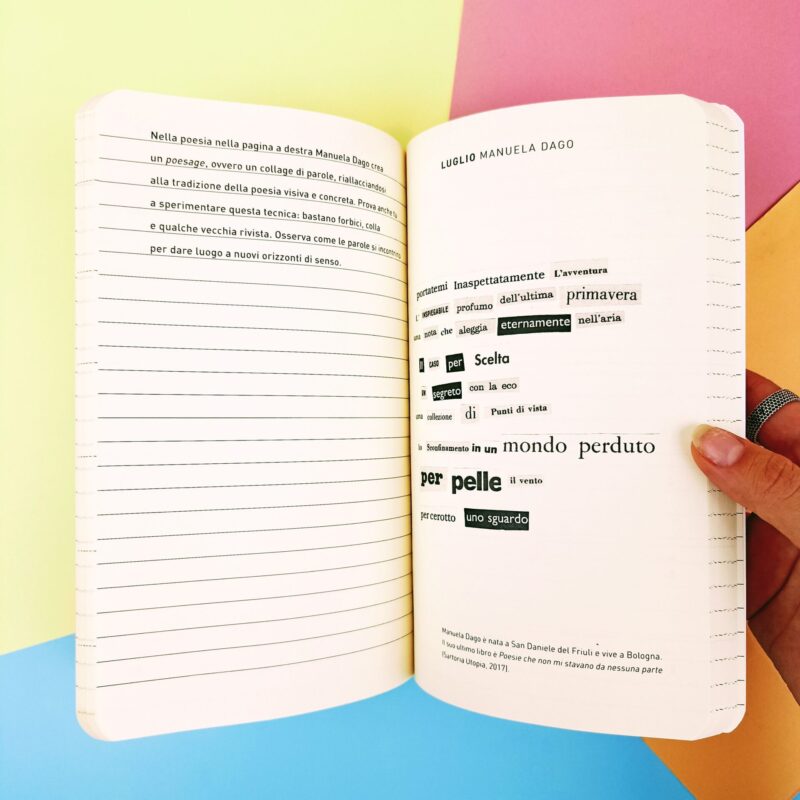 Nella poesia nella pagina a destra Manuela Dago crea
un poesage, ovvero un collage di parole, riallacciandosi
alla tradizione della poesia visiva e concreta. Prova anche tu
a sperimentare questa tecnica: bastano forbici, colla
e qualche vecchia rivista. Osserva come le parole si incontrino
per dare luogo a nuovi orizzonti di senso.
LUGLIO MANUELA DAGO
portatemi Inaspettatamente L'avventura
L' INSPIEGABILE profumo dell'ultima primavera
una nota che aleggia eternamente nell'aria
IL CASO per Scelta
un segreto con la eco
una collezione di Punti di vista
lo Sconfinamento in un mondo perduto
per pelle il vento
per cerotto uno sguardo
Manuela Dago è nata a San Daniele del Friuli e vive a Bologna.
Il suo ultimo libro è Poesie che non mi stavano da nessuna parte
(Sartoria Utopia, 2017).